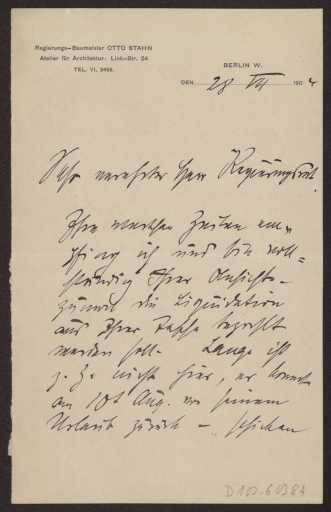 Regierungs-Baumeister OTTO STAHN
Atelier für Architektur: Link-Str. 24
TEL. VI, 3498.
BERLIN W.
DEN 28 VII 190
Sehr verehrter Herr Regierungsrat
Ihre werthen Zeilen em-
pfing ich und bin voll-
ständig Ihrer Ansicht-
die Liquidation
aus Ihrer Tasche bezahlt
werden soll. Lange ist
z. Z. nicht hier, er kommt
am 10t Aug. von seinem
Urlaub zurück – schicken